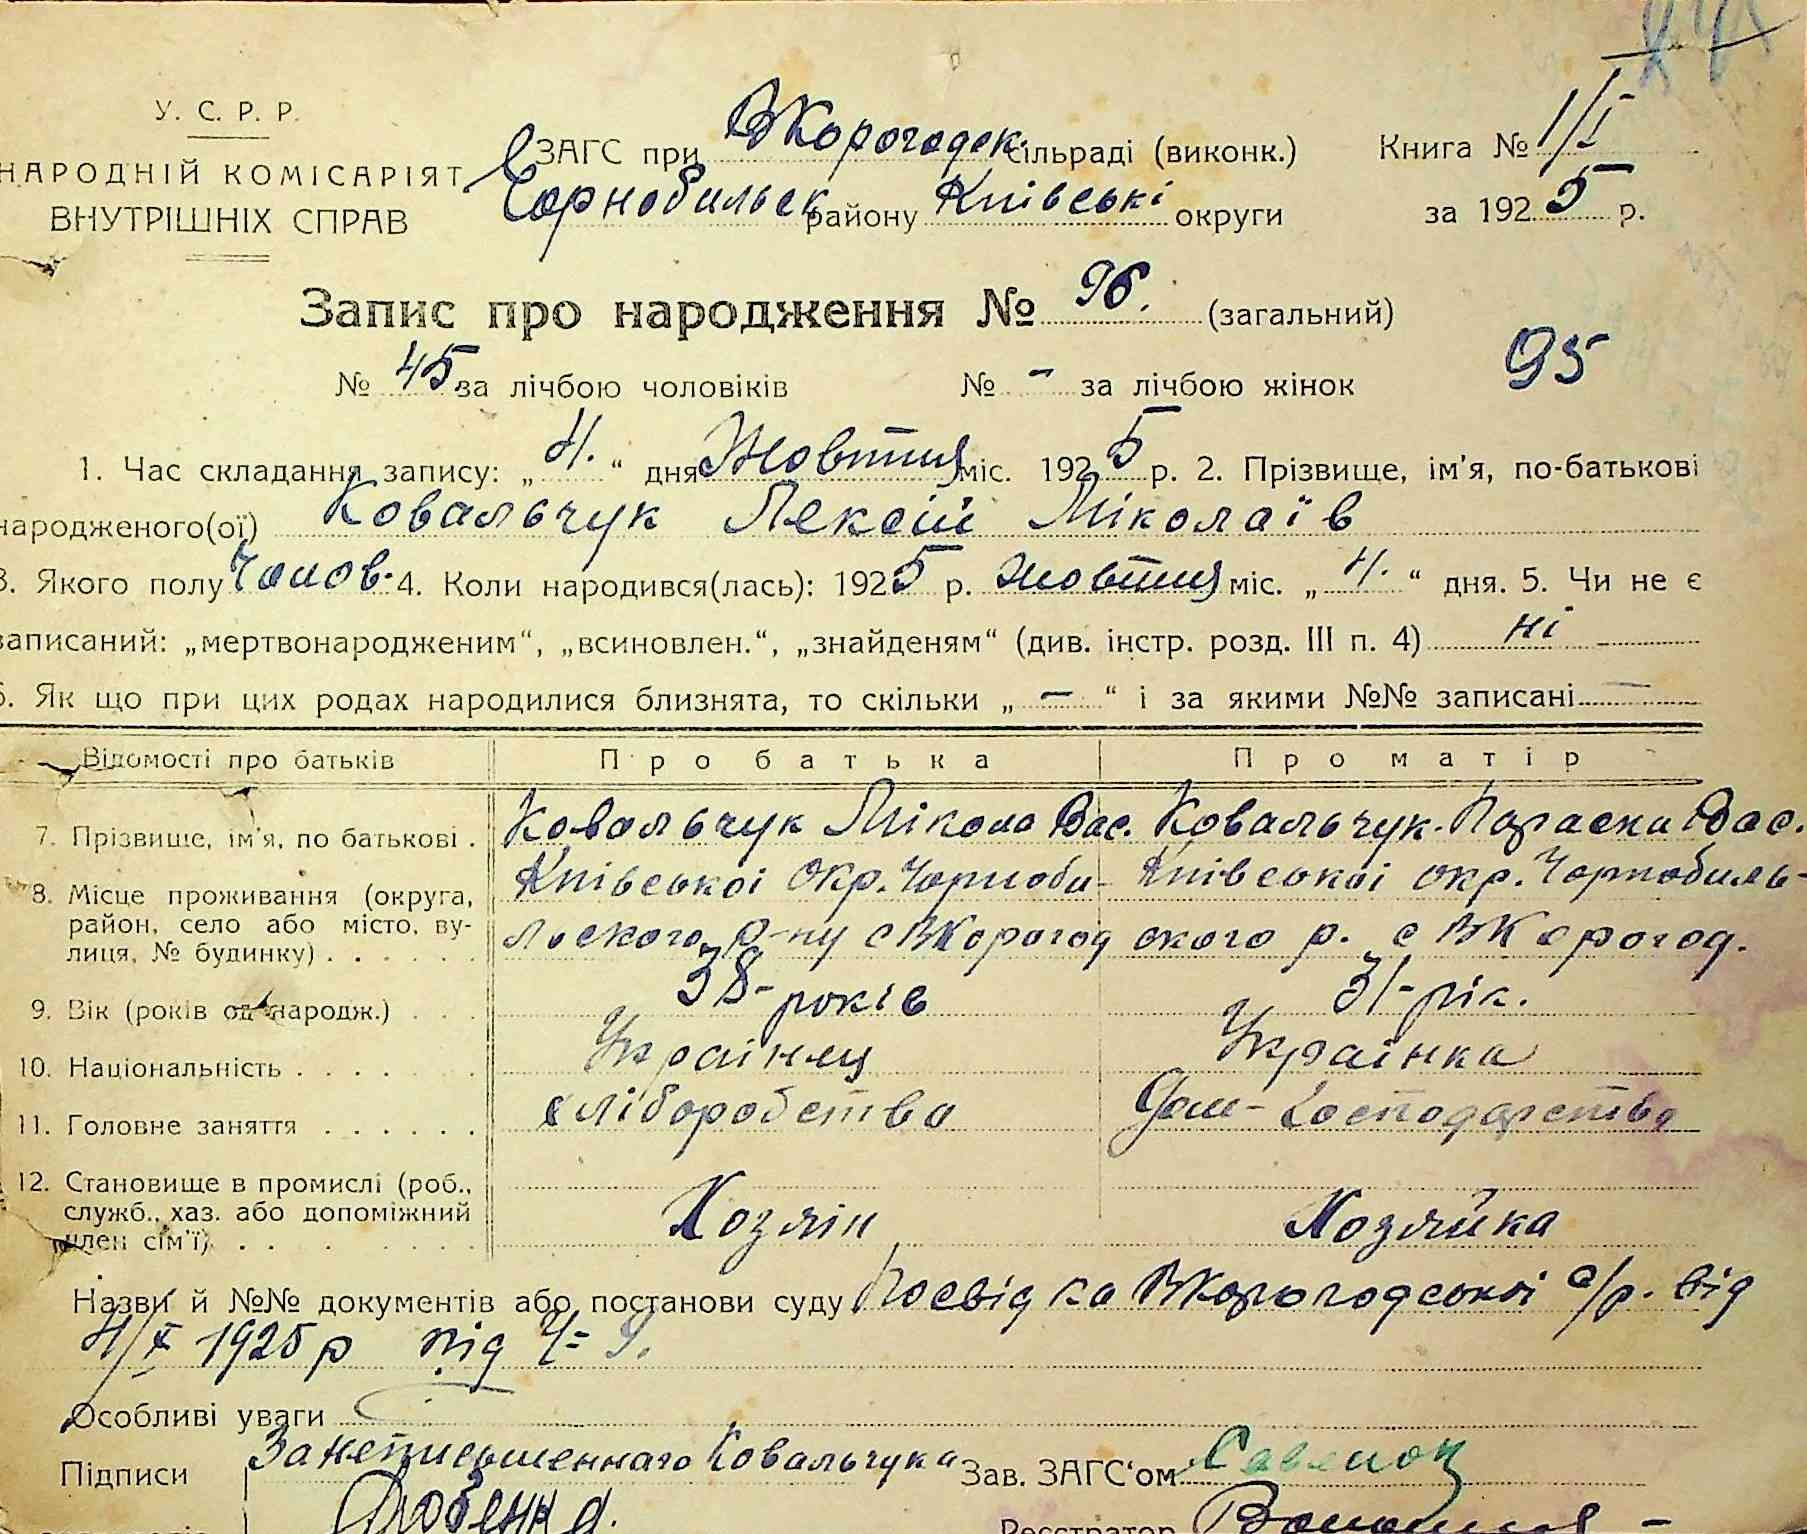 У. С. Р. Р.
НАРОДНІЙ КОМІСАРІЯТ
ВНУТРІШНІХ СПРАВ
ЗАГС при ВКорогодск сільраді (виконк.)
Чорнобильск району Київські округи
Книга № 1/I
за 1925 р.
Запис про народження № 96. (загальний)
№ 45 за лічбою чоловіків № - за лічбою жінок 95
1. Час складання запису: „ 4. “ дня Жовтня міс. 1925 р. 2. Прізвище, ім'я, по-батькові
народженого(ої) Ковальчук Лексій Міколаїв
3. Якого полу Чолов. 4. Коли народився(лась): 1925 р. жовтня міс. „ 4. “ дня. 5. Чи не є
записаний: „мертвонародженим“, „всиновлен.“, „знайденям“ (див. інстр. розд. III п. 4) ні
6. Як що при цих родах народилися близнята, то скільки „ — “ і за якими №№ записані —
Відомості про батьків Про батька Про матір
7. Прізвище, ім'я, по батькові . Ковальчук Мікола Вас. Ковальчук Параска Вас.
8. Місце проживання (округа, район, село або місто, вулиця, № будинку) Київської окр. Чорноби- Київської окр. Чорнобиль-
льского р-ну с ВКорогод ского р. с ВКорогод.
9. Вік (років од народж.) 38-років 31-рік.
10. Національність Українец Українка
11. Головне заняття хліборобство Дом-господарство
12. Становище в промислі (роб., служб., хаз. або допоміжний член сім'ї) Хозяін Хозяйка
Назви й №№ документів або постанови суду Посвідка ВКорогодської с/р. від
4/X 1925 р під Ч=9.
Особливі уваги
Підписи За неписьменнаго Ковальчука Зав. ЗАГС'ом
Реєстратор